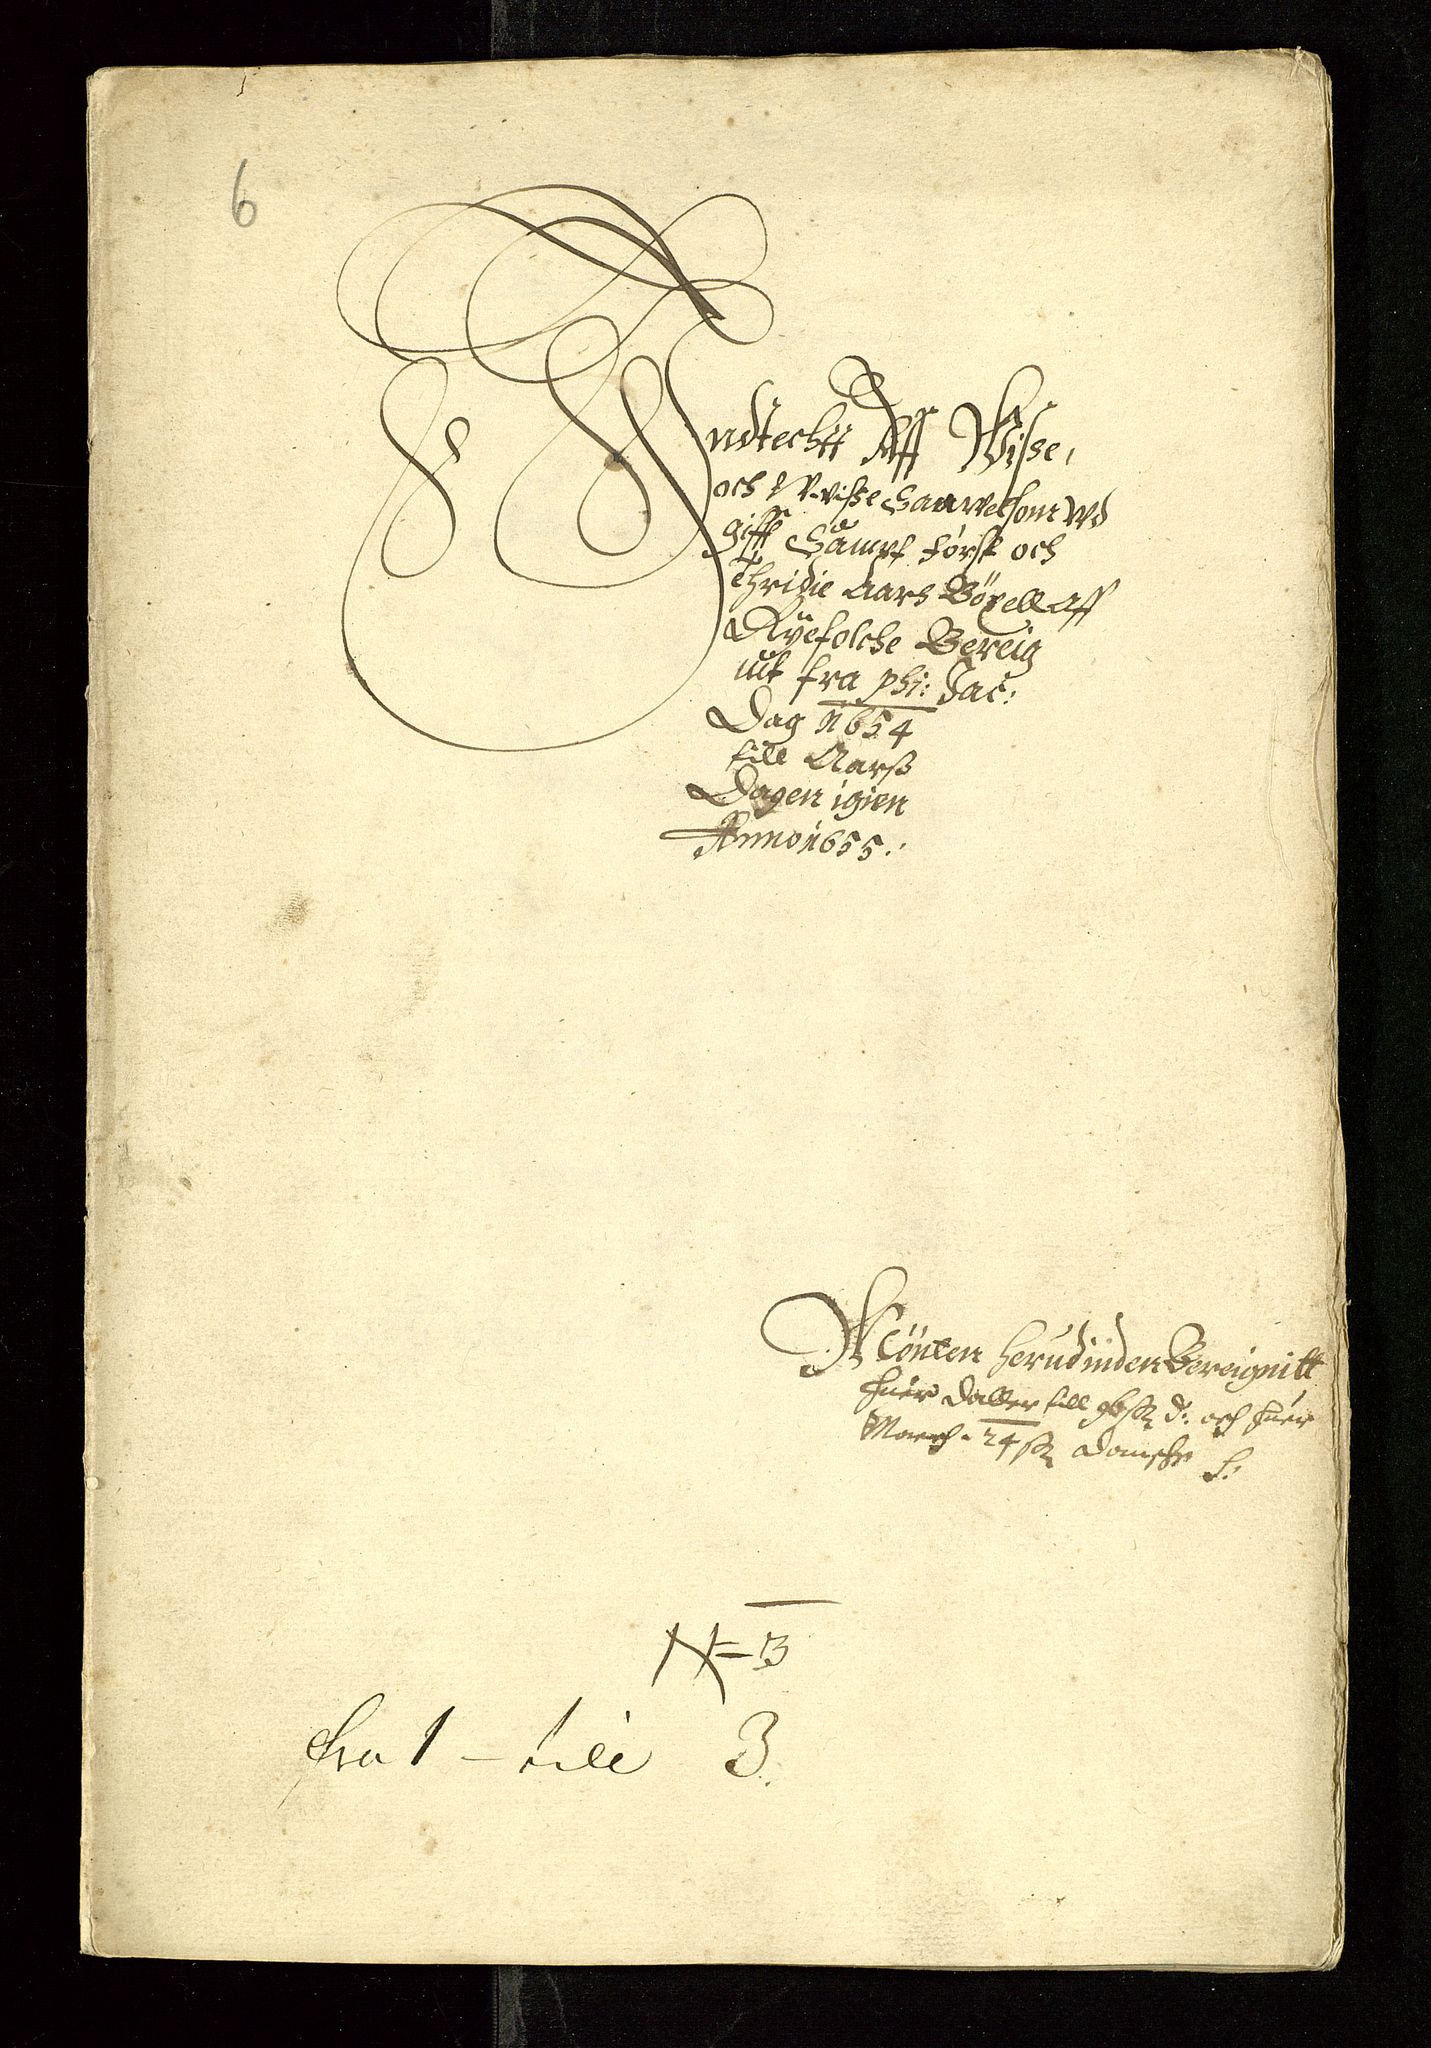 6
Indtechtt Aff Wisse,
och Wvisse Saawelsom Wd
gifft Sampt først och
thridie Aars Böxell aff
Ryefolche Bereig
nit fra phi: Jac:
Dag 1654
till Aarss
Dagen igien
Anno 1655:
Mönten herudinden Bereignitt
huer daller till 96 ß d: och huer
March - 24 ß danske
N= 3
fra 1 - till 3.